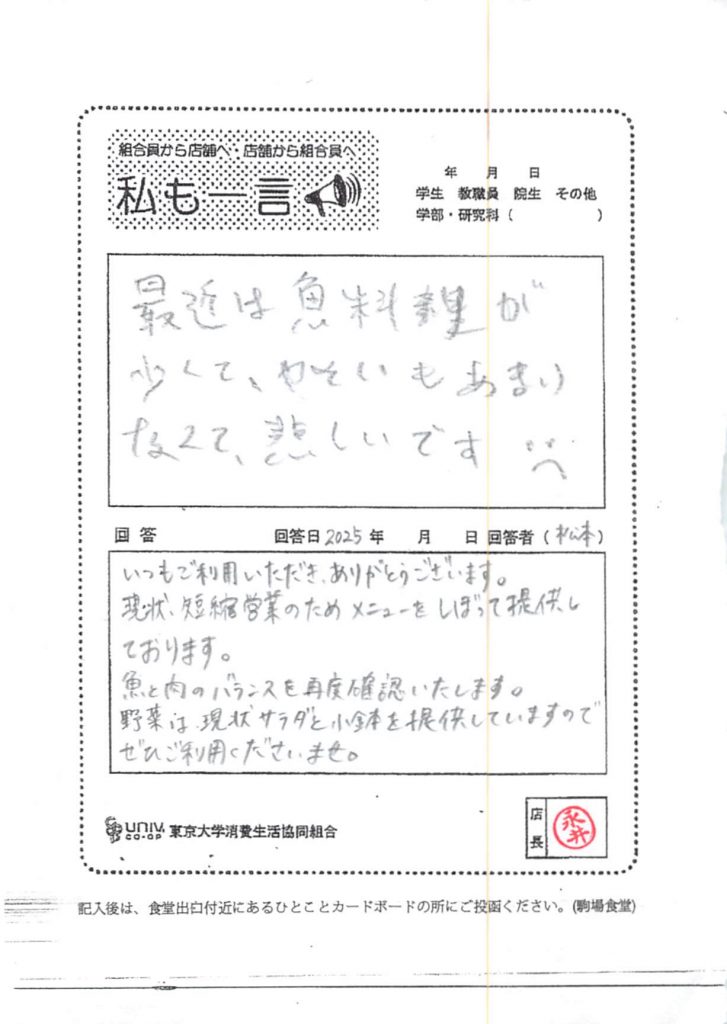 組合員から店舗へ・店舗から組合員へ
私も一言
年 月 日
学生 教職員 院生 その他
学部・研究科 ( )
最近は魚料理が
少くて、やさいもあまり
なくて、悲しいです
回答 回答日2025年 月 日 回答者 (松本)
いつもご利用いただき、ありがとうございます。
現状、短縮営業のためメニューをしぼって提供し
ております。
魚と肉のバランスを再度確認いたします。
野菜は、現状サラダと小鉢を提供していますので
ぜひご利用くださいませ。
UNIV.
CO-OP
東京大学消費生活協同組合
店長
永井
記入後は、食堂出口付近にあるひとことカードボードの所にご投函ください。(駒場食堂)